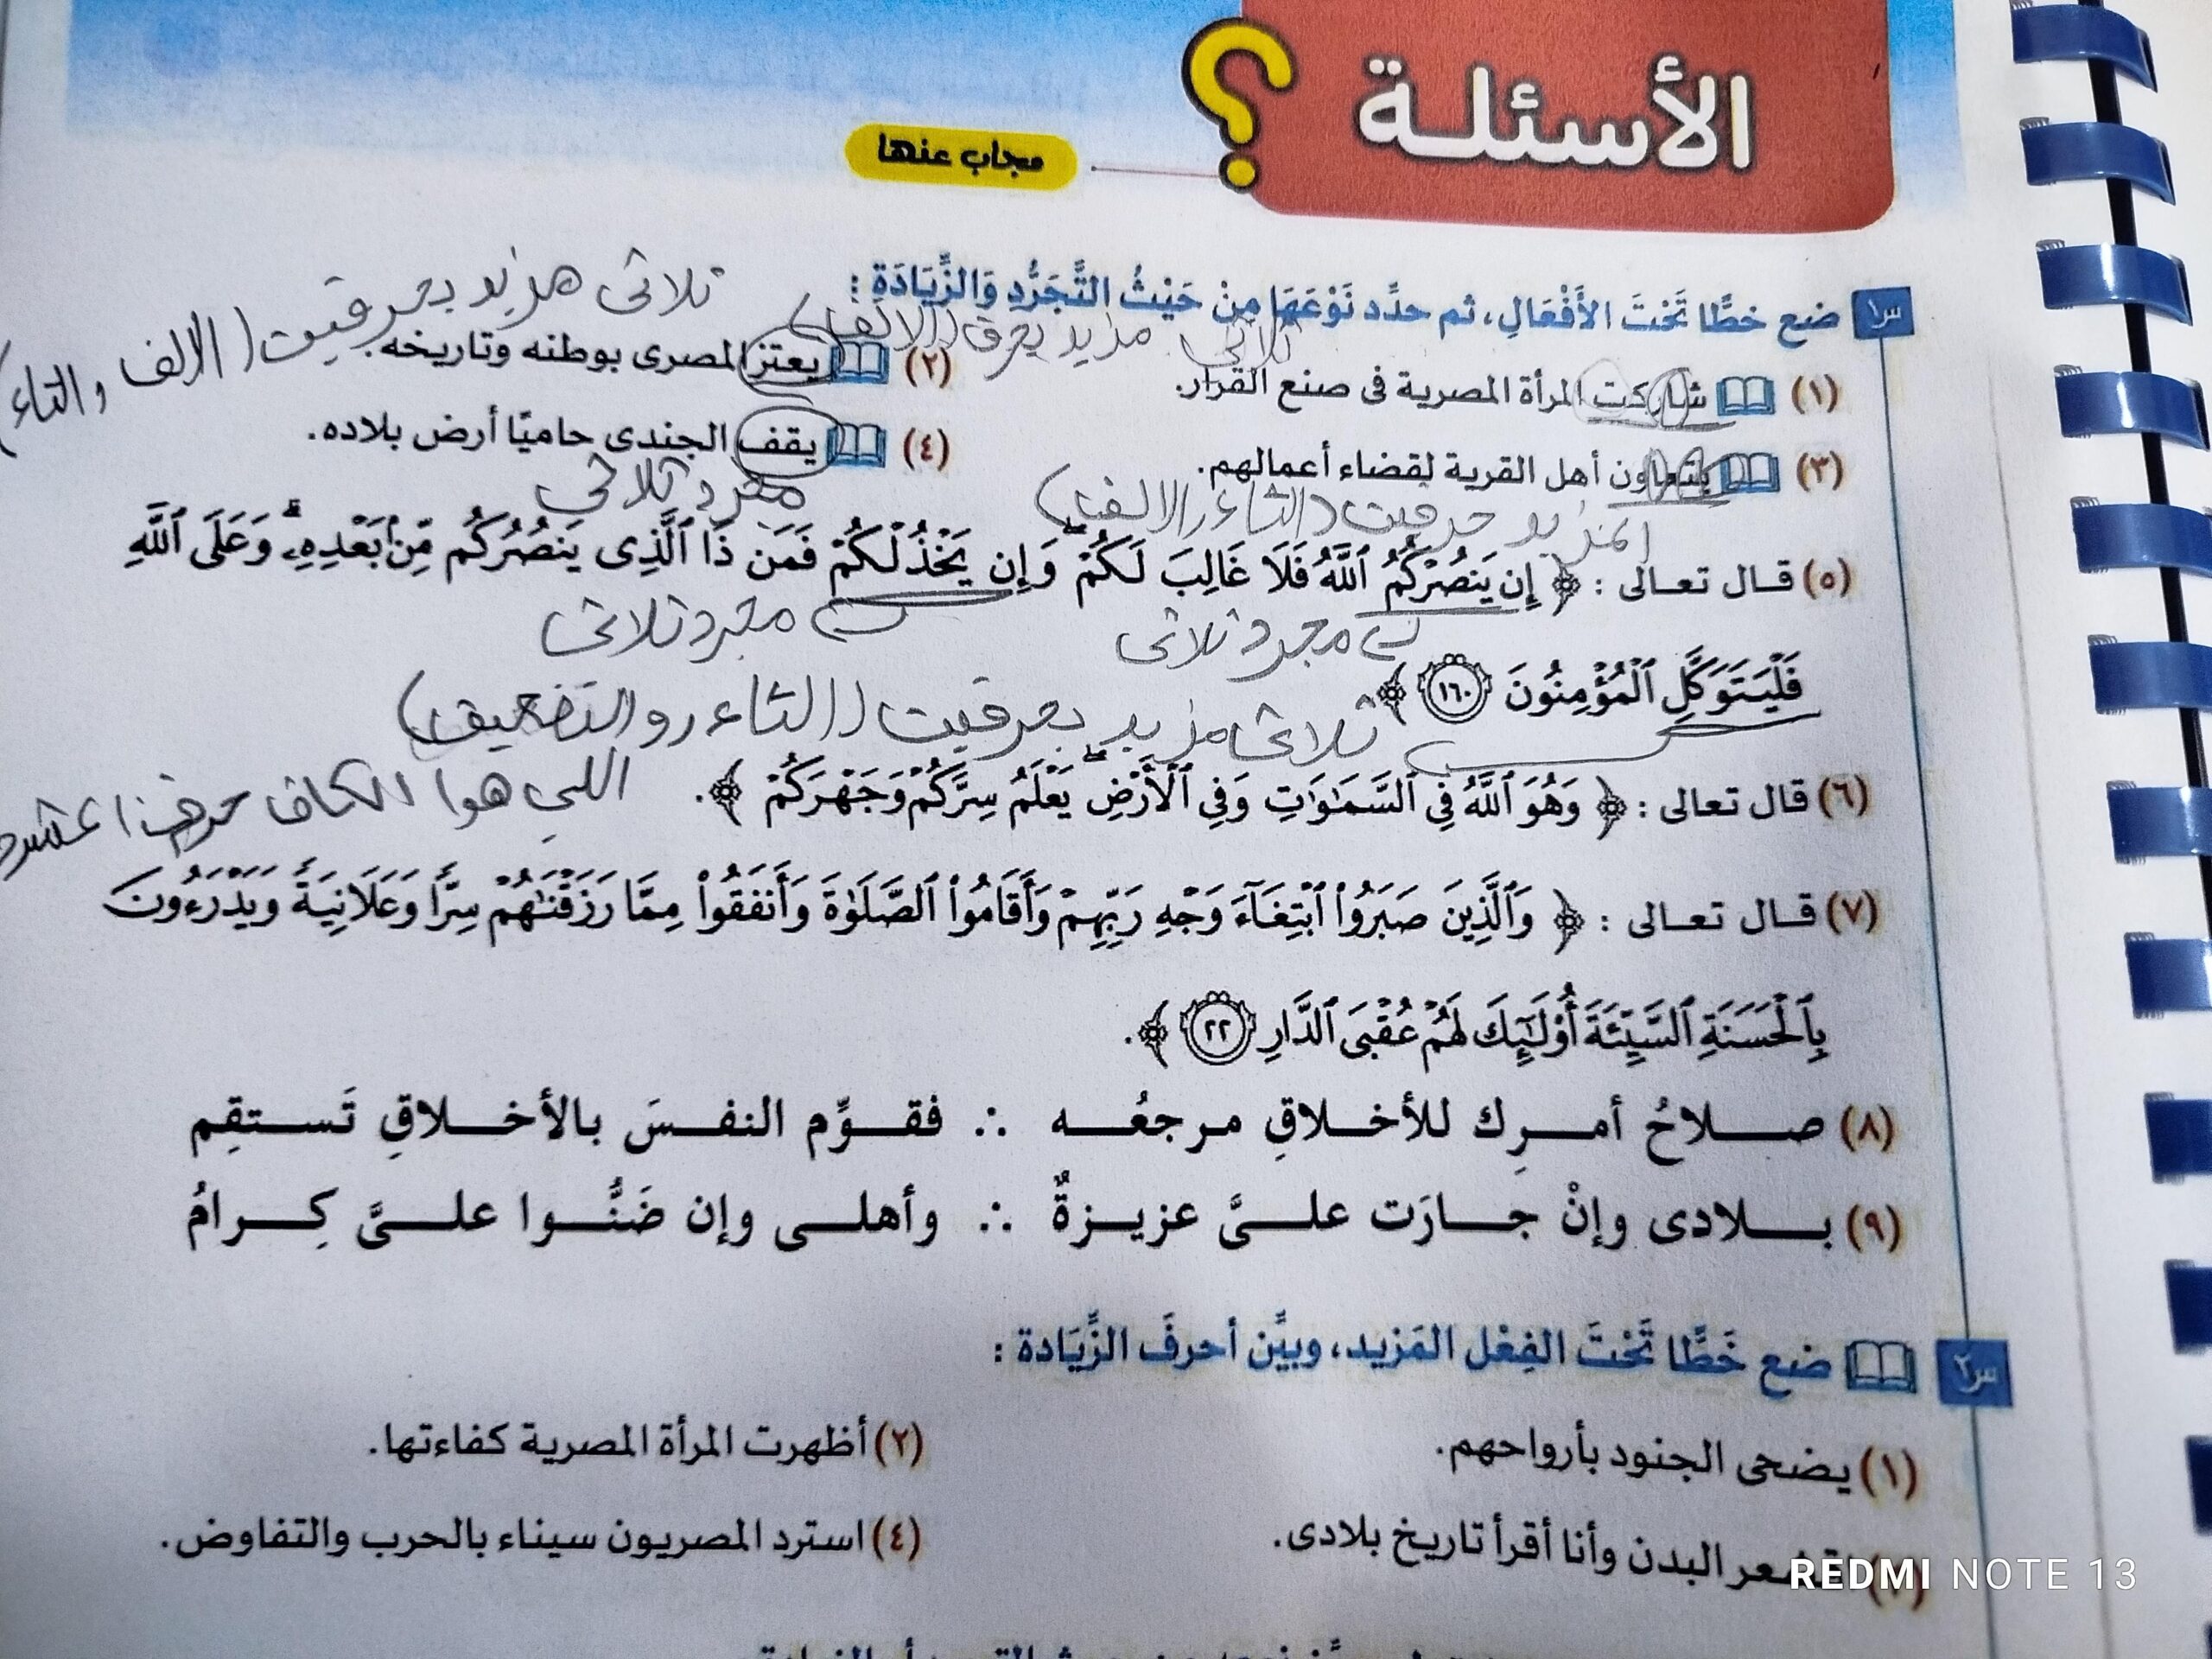 الأسئلة ؟
مجاب عنها
س١ ضع خطًّا تَحْتَ الأَفْعَالِ، ثم حدِّد نَوْعَهَا مِنْ حَيْثُ التَّجَرُّدِ وَالزِّيَادَةِ :
ثلاثى مزيد بحرف (الالف)
(١) شاركت المرأة المصرية فى صنع القرار.
ثلاثى مزيد بحرفيت (الالف والتاء)
(٢) يعتز المصرى بوطنه وتاريخه.
(٣) يتعاون أهل القرية لقضاء أعمالهم.
(٤) يقف الجندى حاميًا أرض بلاده.
مجرد ثلاثى
(٥) قال تعالى : ﴿ إِن يَنصُرْكُمُ ٱللَّهُ فَلَا غَالِبَ لَكُمْ ۖ وَإِن يَخْذُلْكُمْ فَمَن ذَا ٱلَّذِى يَنصُرُكُم مِّنۢ بَعْدِهِۦ ۗ وَعَلَى ٱللَّهِ
مجرد ثلاثى
مجرد ثلاثى
فَلْيَتَوَكَّلِ ٱلْمُؤْمِنُونَ ١٦٠ ﴾
ثلاثى مزيد بحرفيت (التاء والتضعيف)
اللي هوا الكاف
(٦) قال تعالى : ﴿ وَهُوَ ٱللَّهُ فِى ٱلسَّمَٰوَٰتِ وَفِى ٱلْأَرْضِ ۖ يَعْلَمُ سِرَّكُمْ وَجَهْرَكُمْ ﴾.
(٧) قال تعالى : ﴿ وَٱلَّذِينَ صَبَرُوا۟ ٱبْتِغَآءَ وَجْهِ رَبِّهِمْ وَأَقَامُوا۟ ٱلصَّلَوٰةَ وَأَنفَقُوا۟ مِمَّا رَزَقْنَٰهُمْ سِرًّا وَعَلَانِيَةً وَيَدْرَءُونَ
بِٱلْحَسَنَةِ ٱلسَّيِّئَةَ أُو۟لَٰٓئِكَ لَهُمْ عُقْبَى ٱلدَّارِ ٢٢ ﴾.
(٨) صلاحُ أمرِك للأخلاقِ مرجعُه ∴ فقوِّم النفسَ بالأخلاقِ تَستقِم
(٩) بلادى وإنْ جارَت علىَّ عزيزةٌ ∴ وأهلى وإن ضَنُّوا علىَّ كِرامُ
س٢ ضع خَطًّا تَحْتَ الفِعْل المَزيد، وبيِّن أحرفَ الزِّيَادة :
(١) يضحى الجنود بأرواحهم.
(٢) أظهرت المرأة المصرية كفاءتها.
البدن وأنا أقرأ تاريخ بلادى.
(٤) استرد المصريون سيناء بالحرب والتفاوض.
REDMI NOTE 13